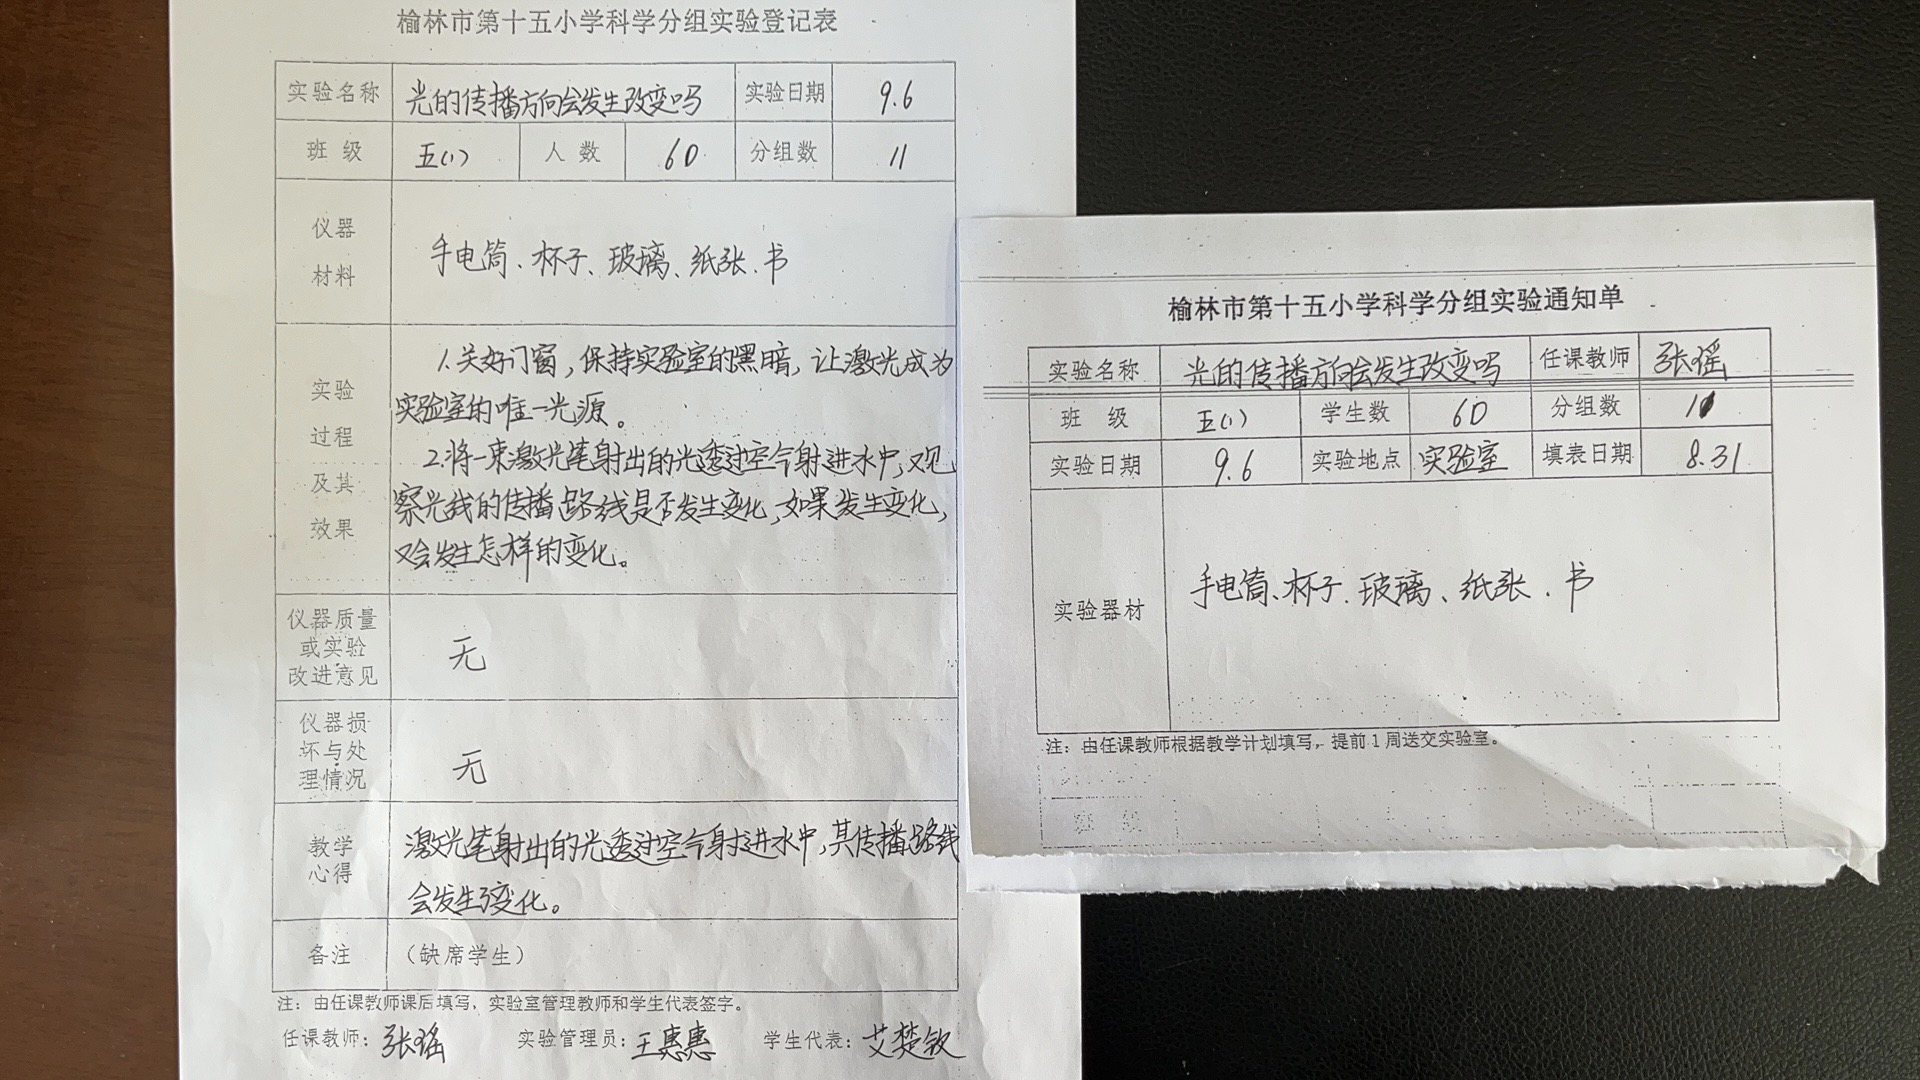 榆林市第十五小学科学分组实验登记表
实验名称 光的传播方向会发生改变吗 实验日期 9.6
班级 五(1) 人数 60 分组数 11
仪器材料 手电筒、杯子、玻璃、纸张、书
实验过程及其效果
1.关好门窗，保持实验室的黑暗，让激光成为
实验室的唯一光源。
2.将一束激光笔射出的光透过空气射进水中，观
察光线的传播路线是否发生变化，如果发生变化，
又会发生怎样的变化。
仪器质量或实验改进意见 无
仪器损坏与处理情况 无
教学心得
激光笔射出的光透过空气射进水中，其传播路线
会发生变化。
各注 （缺席学生）
注：由任课教师课后填写，实验室管理教师和学生代表签字。
任课教师：张瑶 实验管理员：王惠惠 学生代表：艾楚钦
榆林市第十五小学科学分组实验通知单
实验名称 光的传播方向会发生改变吗 任课教师 张瑶
班级 五(1) 学生数 60 分组数 11
实验日期 9.6 实验地点 实验室 填表日期 8.31
实验器材 手电筒、杯子、玻璃、纸张、书
注：由任课教师根据教学计划填写，提前1周送交实验室。
班 级